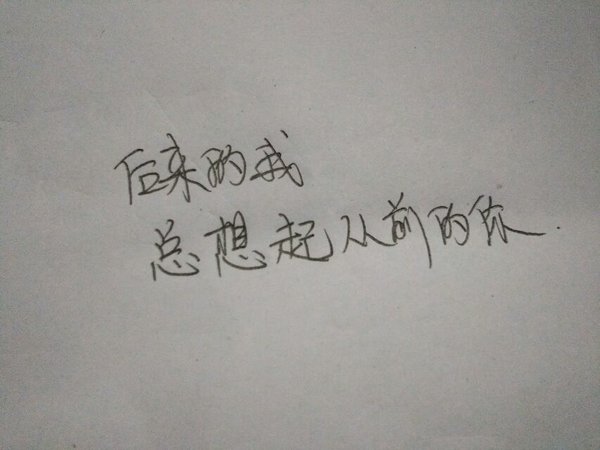 后来的我
总想起从前的你